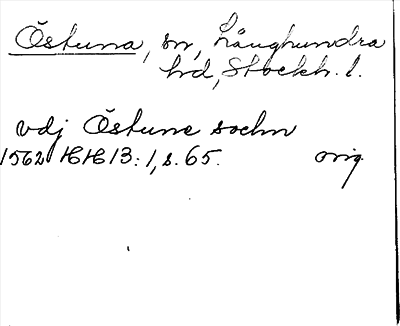 Östuna, sn, Långhundra
hd, Stockh. l.
vdj Östune sochn
1562 HH 13:1, s. 65. orig